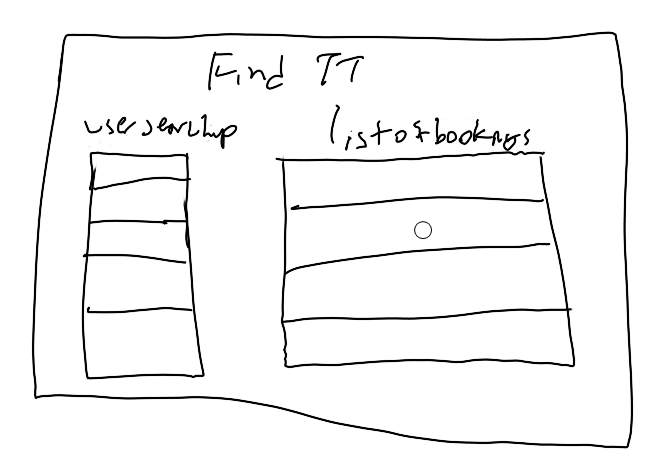 Find TT
user searchup
list of bookings